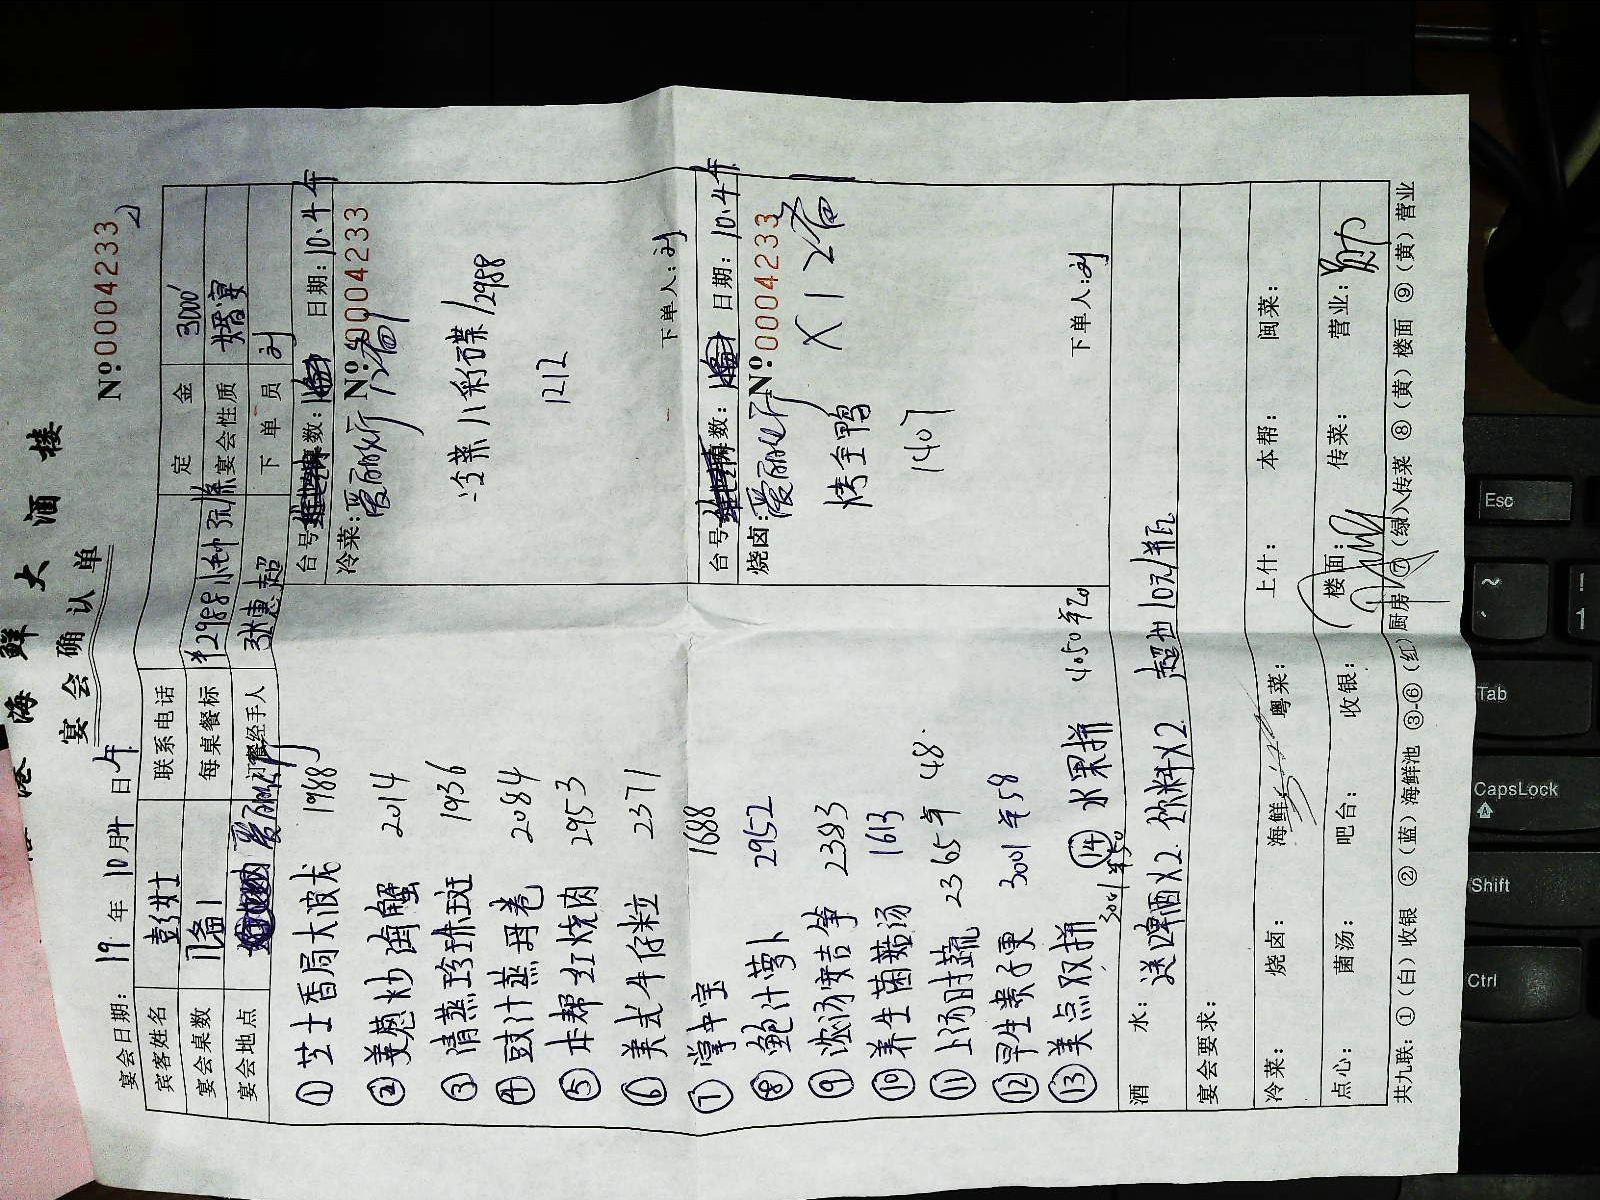 海鲜大酒楼
宴会确认单
№00004233
宴会日期: 19 年 10 月 4 日 午
宾客姓名 彭女士 联系电话 定金 3000
宴会桌数 1 每桌餐标 ¥2988 宴会性质 婚宴
宴会地点 爱丽 订餐经手人 张惠超 下单员 刘
① 芝士香焗大波龙 1988
② 姜葱炒海蟹 2014
③ 清蒸珍珠斑 1936
④ 豉汁蒸丹卷 2084
⑤ 本帮红烧肉 2953
⑥ 美式牛仔粒 2371
⑦ 掌中宝 1688
⑧ 鲍汁萝卜 2952
⑨ 浓汤娃 2383
⑩ 养生菌菇汤 1613
⑪ 上汤时蔬 2365 48
⑫ 3001 58
⑬ 美点双拼 3001
⑭ 水果拼 4050
台号 数: 日期: 10.4 午
冷菜: 爱丽 №00004233
冷菜八彩碟 /2988
1212
下单人: 刘
台号 数: 日期: 10.4 午
烧卤: 爱丽 №00004233
烤全鸭 X1
1407
下单人: 刘
酒水: 送啤酒X2 饮料X2 超出10元/瓶
宴会要求:
冷菜: 烧卤: 海鲜: 粤菜: 上什: 本帮: 闽菜:
点心: 菌汤: 吧台: 收银: 楼面: 传菜: 营业:
共九联: ①(白)收银 ②(蓝)海鲜池 ③-⑥(红)厨房 ⑦(绿)传菜 ⑧(黄)楼面 ⑨(黄)营业
Esc
Tab
CapsLock
Shift
Ctrl